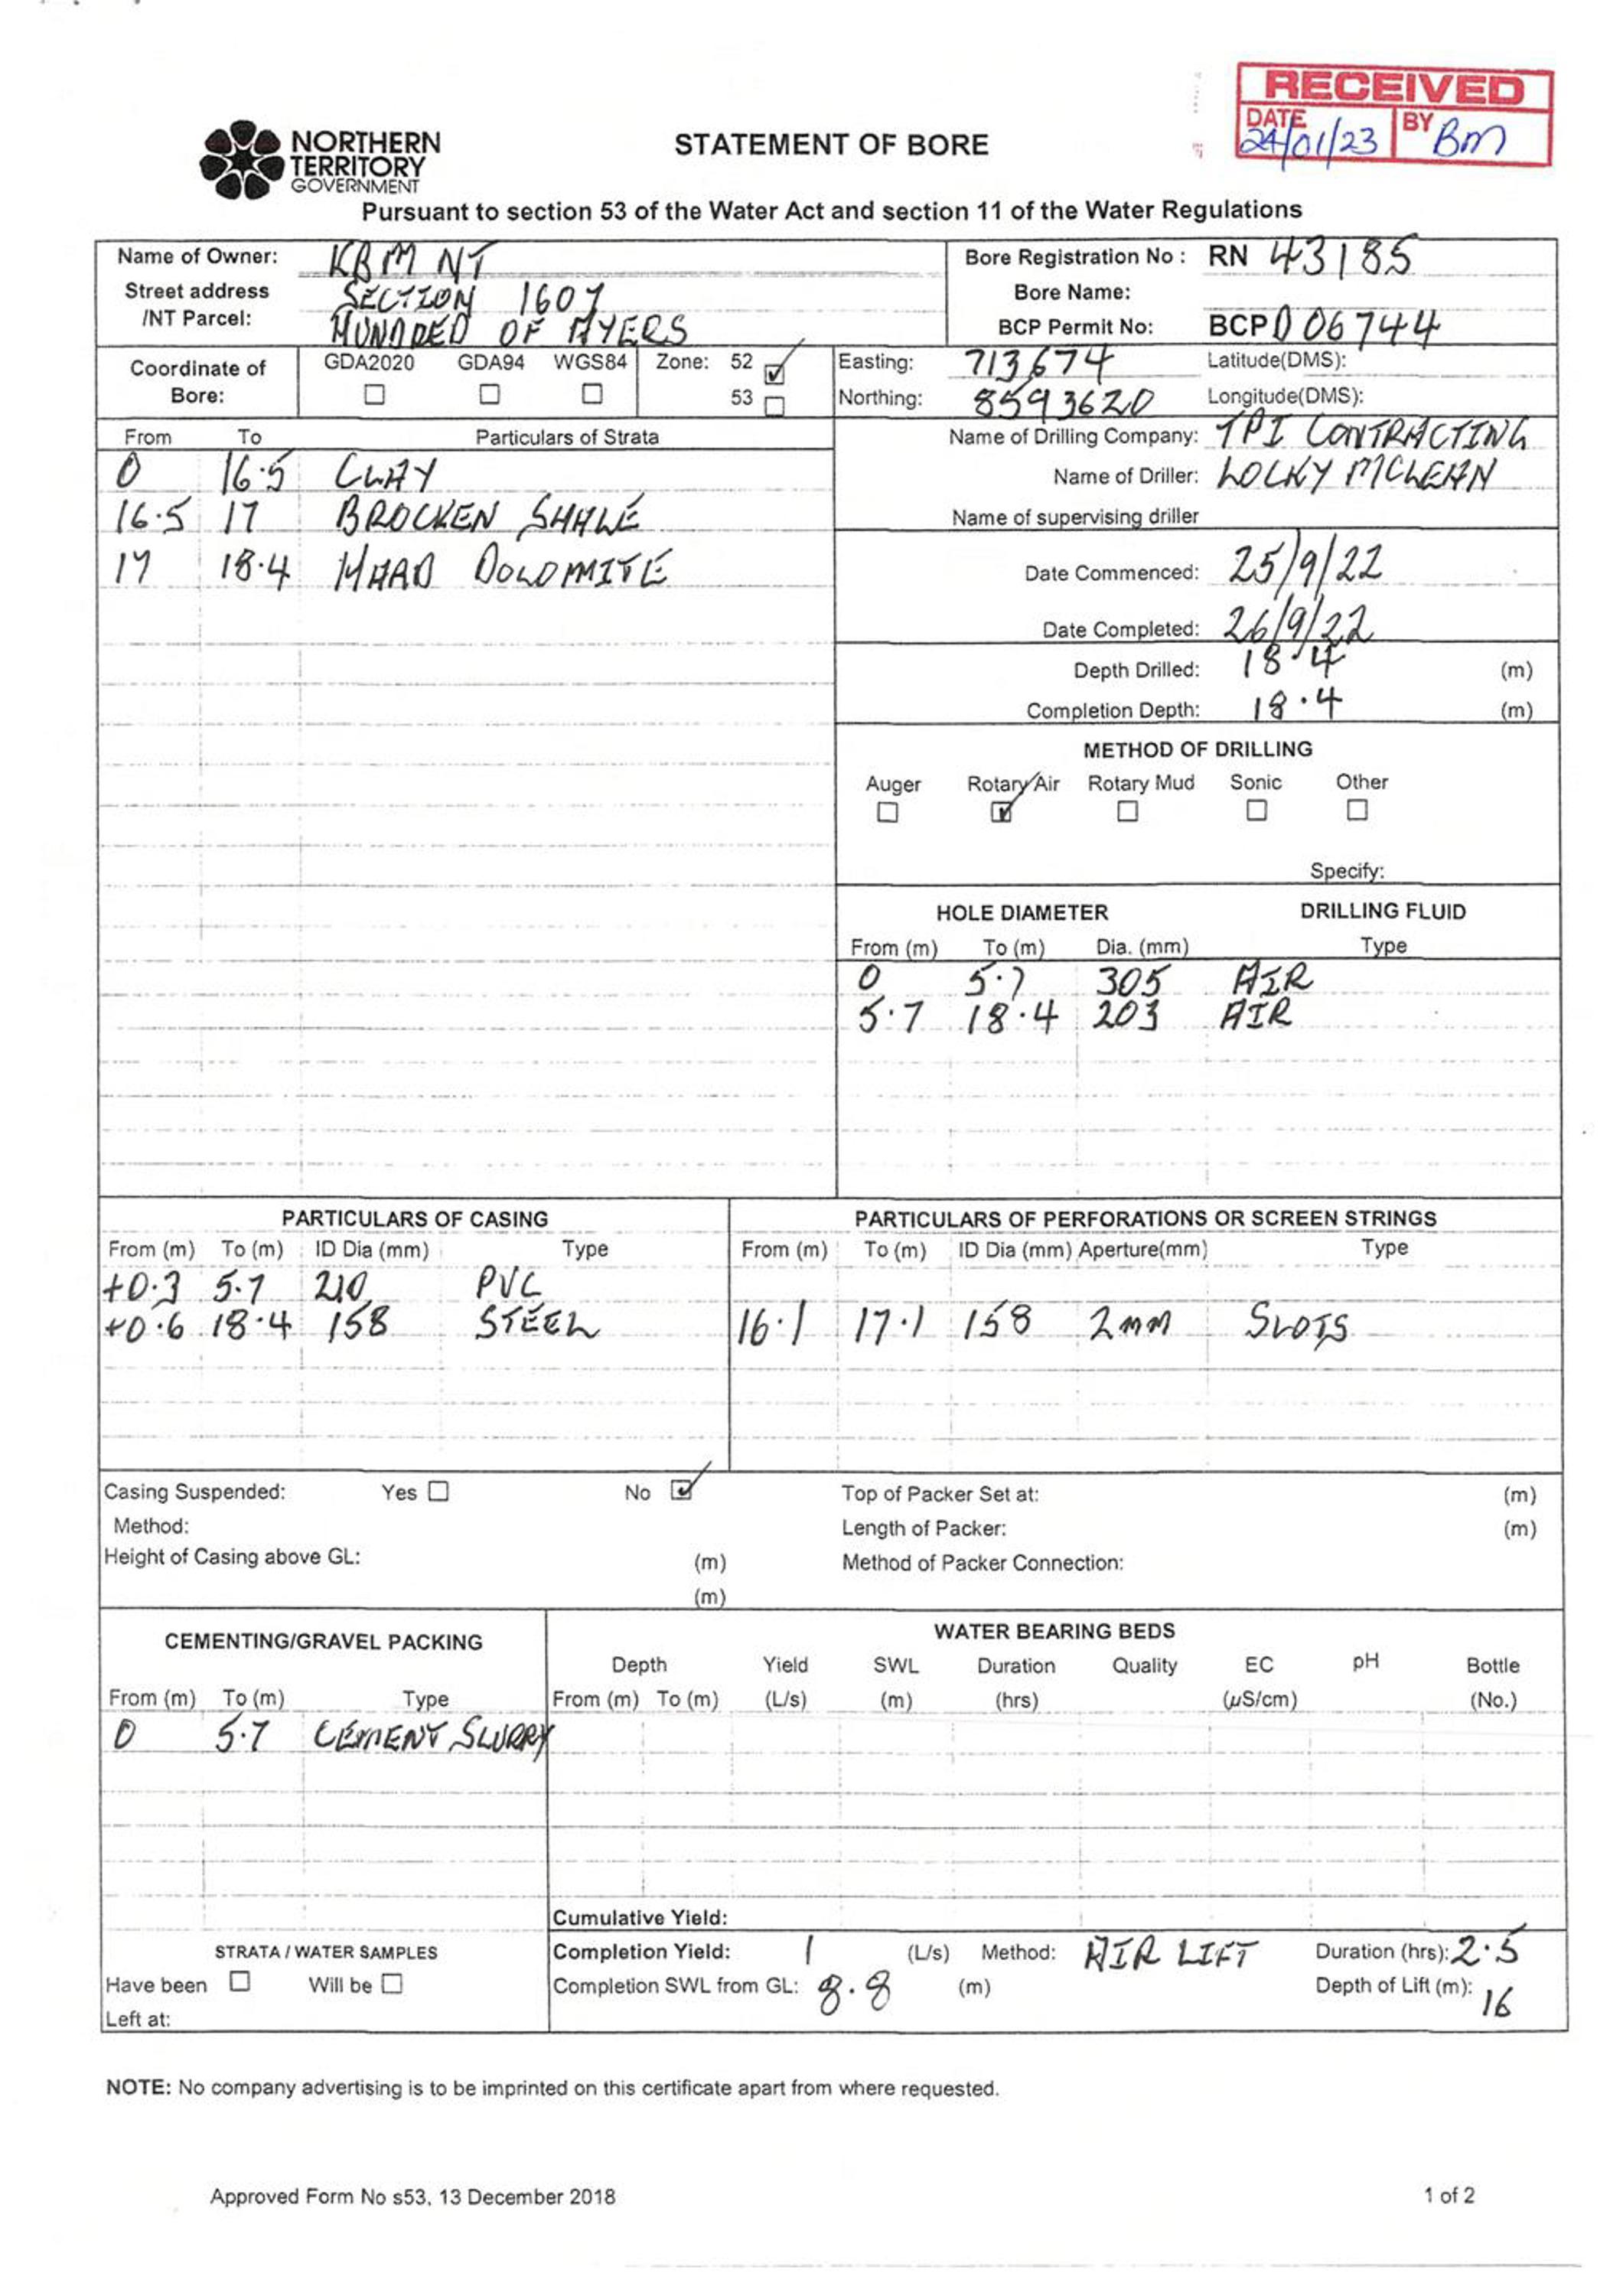 RECEIVED
DATE 24/01/23 BY BM
NORTHERN
TERRITORY
GOVERNMENT
STATEMENT OF BORE
Pursuant to section 53 of the Water Act and section 11 of the Water Regulations
Name of Owner: KBM NT
Street address /NT Parcel: SECTION 1607
HUNDRED OF AYERS
Bore Registration No : RN 43185
Bore Name:
BCP Permit No: BCP 006744
Coordinate of Bore: GDA2020 ☐ GDA94 ☐ WGS84 ☐ Zone: 52 ☑ 53 ☐
Easting: 713674 Latitude(DMS):
Northing: 8593620 Longitude(DMS):
From To Particulars of Strata
0 16.5 CLAY
16.5 17 BROCKEN SHALE
17 18.4 HARD DOLOMITE
Name of Drilling Company: TPI CONTRACTING
Name of Driller: LOCKY MCLEAN
Name of supervising driller
Date Commenced: 25/9/22
Date Completed: 26/9/22
Depth Drilled: 18.4 (m)
Completion Depth: 18.4 (m)
METHOD OF DRILLING
Auger ☐ Rotary Air ☑ Rotary Mud ☐ Sonic ☐ Other ☐
Specify:
HOLE DIAMETER DRILLING FLUID
From (m) To (m) Dia. (mm) Type
0 5.7 305 AIR
5.7 18.4 203 AIR
PARTICULARS OF CASING
From (m) To (m) ID Dia (mm) Type
+0.3 5.7 210 PVC
+0.6 18.4 158 STEEL
PARTICULARS OF PERFORATIONS OR SCREEN STRINGS
From (m) To (m) ID Dia (mm) Aperture(mm) Type
16.1 17.1 158 2MM SLOTS
Casing Suspended: Yes ☐ No ☑
Method:
Height of Casing above GL: (m)
(m)
Top of Packer Set at: (m)
Length of Packer: (m)
Method of Packer Connection:
CEMENTING/GRAVEL PACKING
From (m) To (m) Type
0 5.7 CEMENT SLURRY
WATER BEARING BEDS
Depth Yield SWL Duration Quality EC pH Bottle
From (m) To (m) (L/s) (m) (hrs) (µS/cm) (No.)
Cumulative Yield:
STRATA / WATER SAMPLES
Have been ☐ Will be ☐
Left at:
Completion Yield: 1 (L/s) Method: AIR LIFT Duration (hrs): 2.5
Completion SWL from GL: 8.8 (m) Depth of Lift (m): 16
NOTE: No company advertising is to be imprinted on this certificate apart from where requested.
Approved Form No s53, 13 December 2018
1 of 2